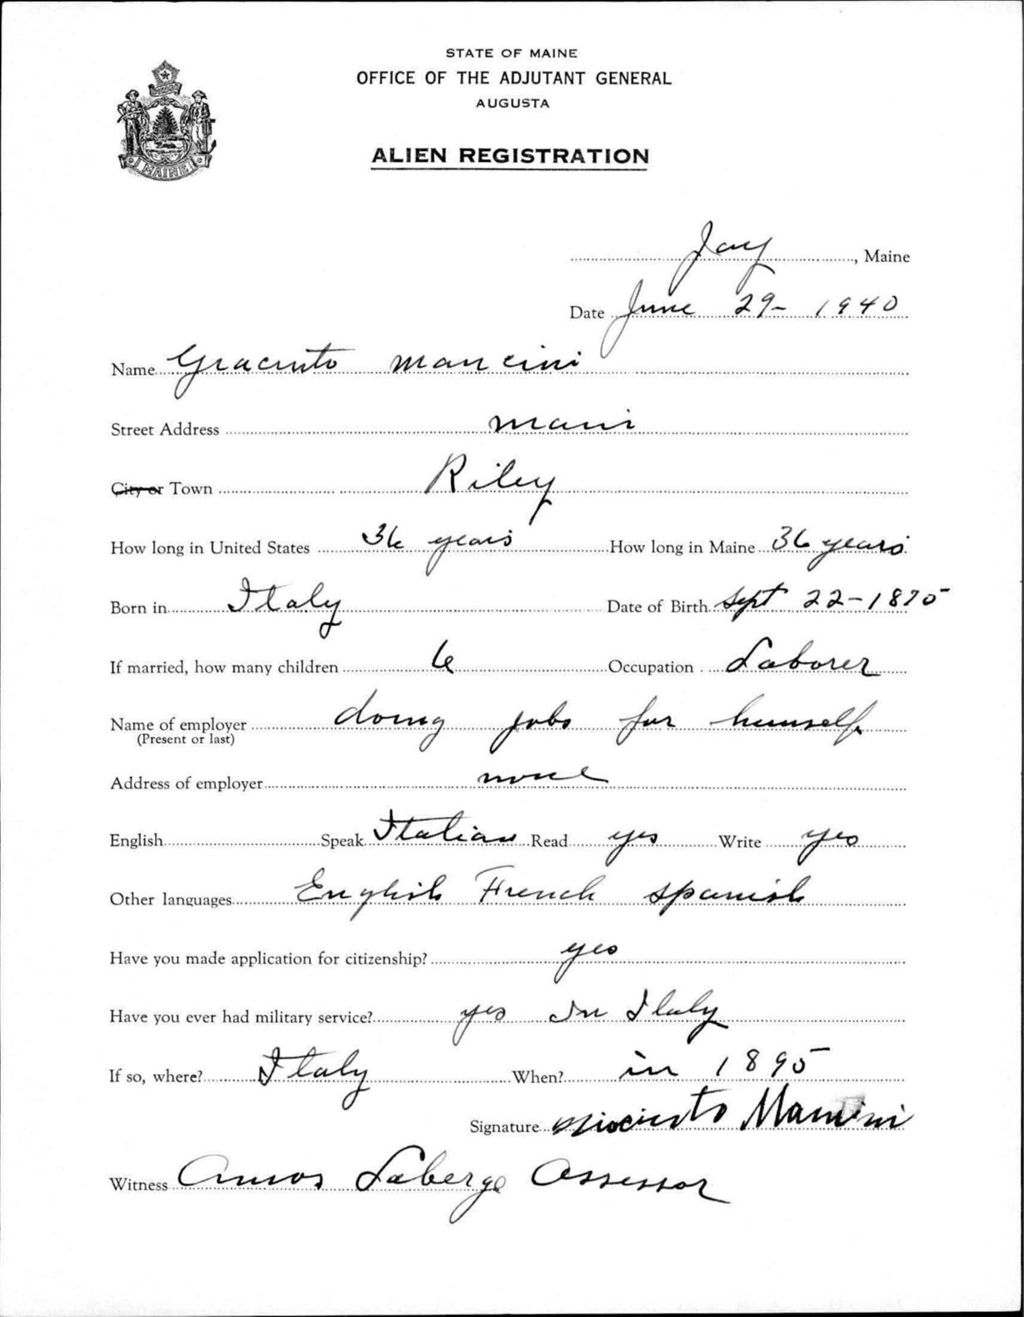 STATE OF MAINE
OFFICE OF THE ADJUTANT GENERAL
AUGUSTA
ALIEN REGISTRATION
MAINE
Jay, Maine
Date June 29- 1940
Name Giacinto Mancini
Street Address Main
City or Town Riley
How long in United States 36 years How long in Maine 36 years
Born in Italy Date of Birth Sept 22-1875
If married, how many children 6 Occupation Laborer
Name of employer doing jobs for himself
(Present or last)
Address of employer none
English Speak Italian Read yes Write yes
Other languages English French Spanish
Have you made application for citizenship? yes
Have you ever had military service? yes In Italy
If so, where? Italy When? in 1895
Signature Mancini
Witness Amos Laberge Assessor